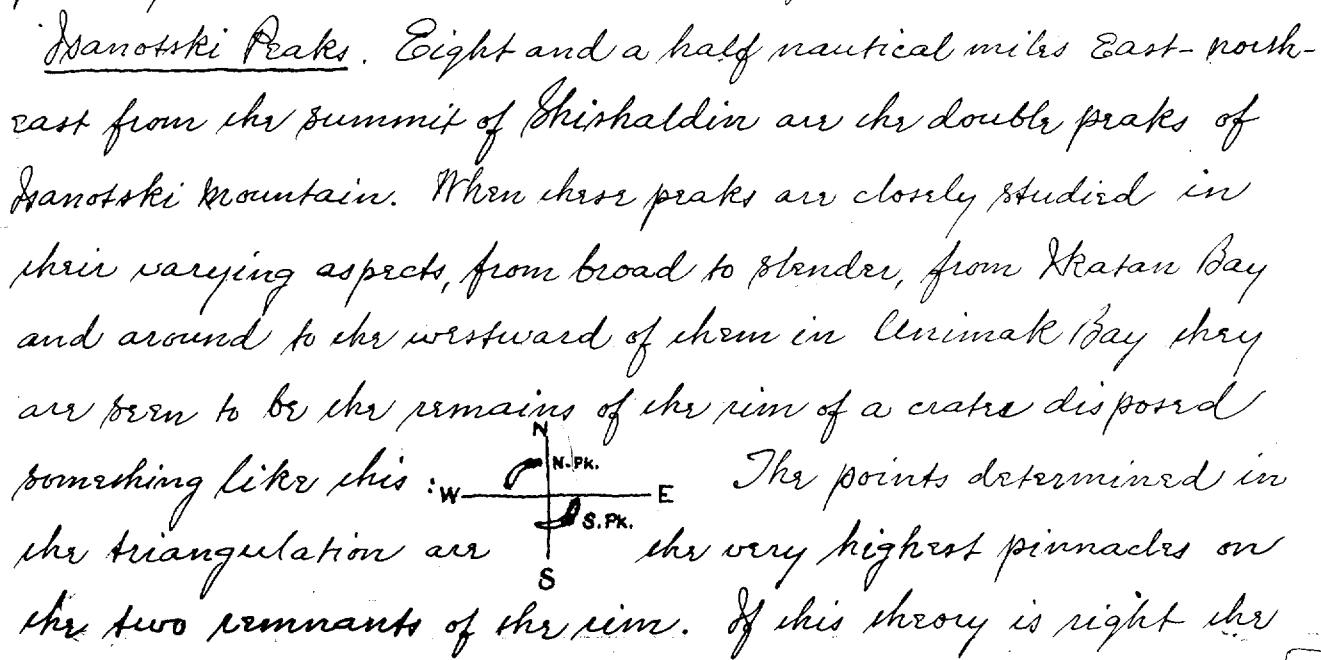 Isanotski Peaks. Eight and a half nautical miles East-north-
east from the summit of Shishaldin are the double peaks of
Isanotski Mountain. When these peaks are closely studied in
their varying aspects, from broad to slender, from Ikatan Bay
and around to the westward of them in Unimak Bay they
are seen to be the remains of the rim of a crater disposed
N
N. Pk.
something like this : W E The points determined in
S. Pk.
the triangulation are the very highest pinnacles on
S
the two remnants of the rim. If this theory is right the